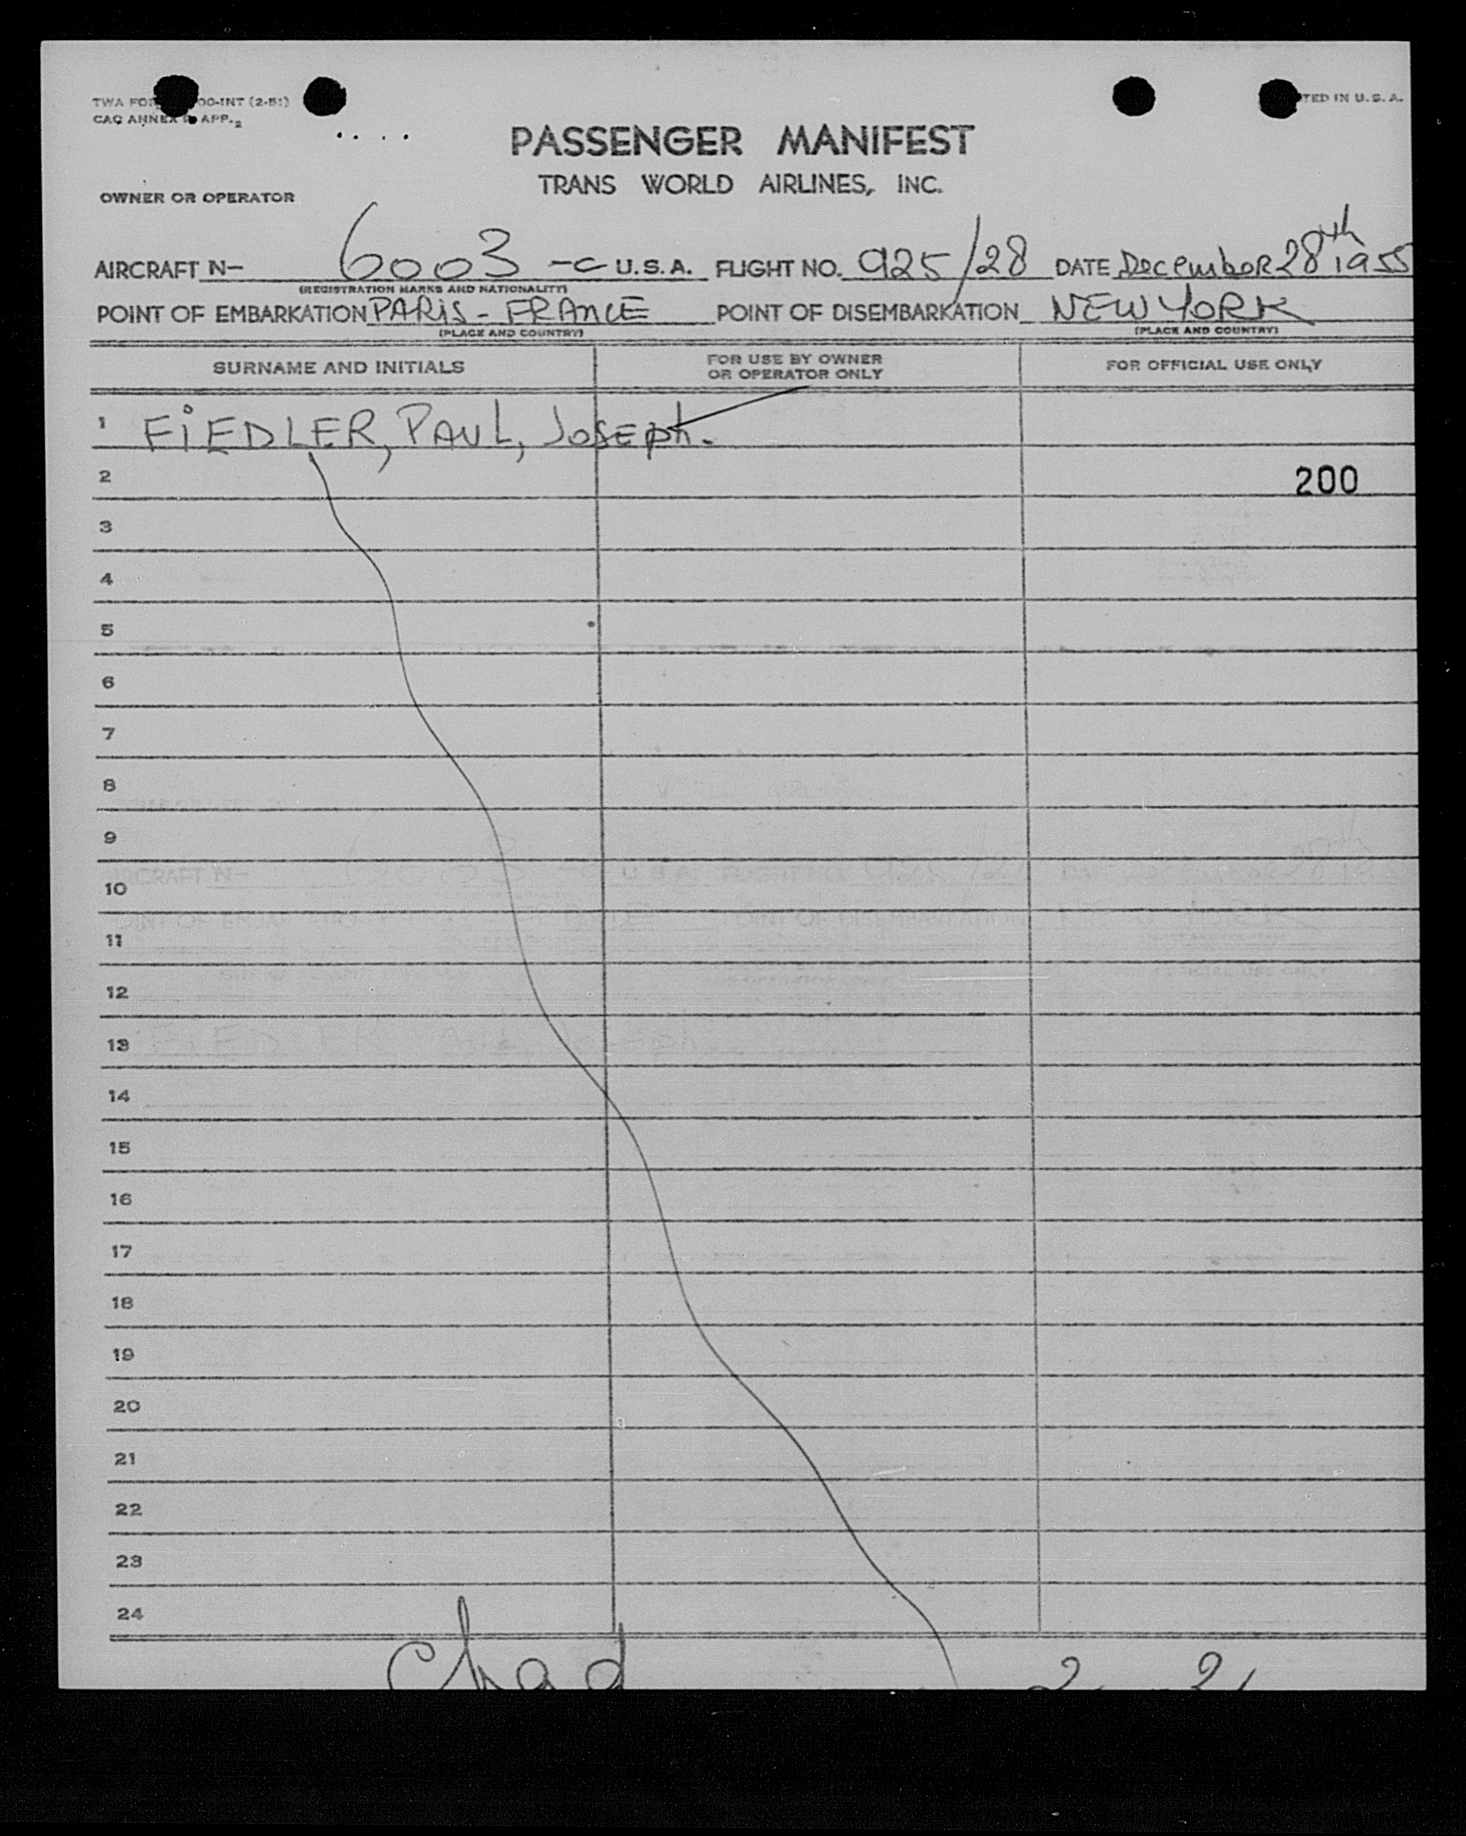 TWA FOR 00-INT (2-51)
TED IN U.S.A.
CAO ANNEX 9 APP. 2
PASSENGER MANIFEST
TRANS WORLD AIRLINES, INC.
OWNER OR OPERATOR
AIRCRAFT N- 6003 -C U.S.A. FLIGHT NO. 925/28 DATE December 28th 1955
(REGISTRATION MARKS AND NATIONALITY)
POINT OF EMBARKATION PARiS - FRANCE POINT OF DISEMBARKATION NEW YORK
(PLACE AND COUNTRY) (PLACE AND COUNTRY)
SURNAME AND INITIALS FOR USE BY OWNER OR OPERATOR ONLY FOR OFFICIAL USE ONLY
1 FiEDLER, PAUL, Joseph.
2 200
3
4
5
6
7
8
9
10
11
12
13
14
15
16
17
18
19
20
21
22
23
24